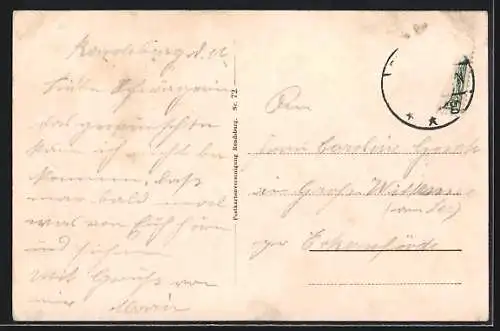 Rendsburg d. 11
Liebe Schwägerin
das gewünschte
kann ich nicht be
kommen, daß
man bald mal
was von Euch hören
und sehen
Mit Gruß von
mir Marie
Postkartenvereinigung Rendsburg. Nr. 72.
An
Frau Caroline
in Groß Wittensee
(am See)
per Eckernförde